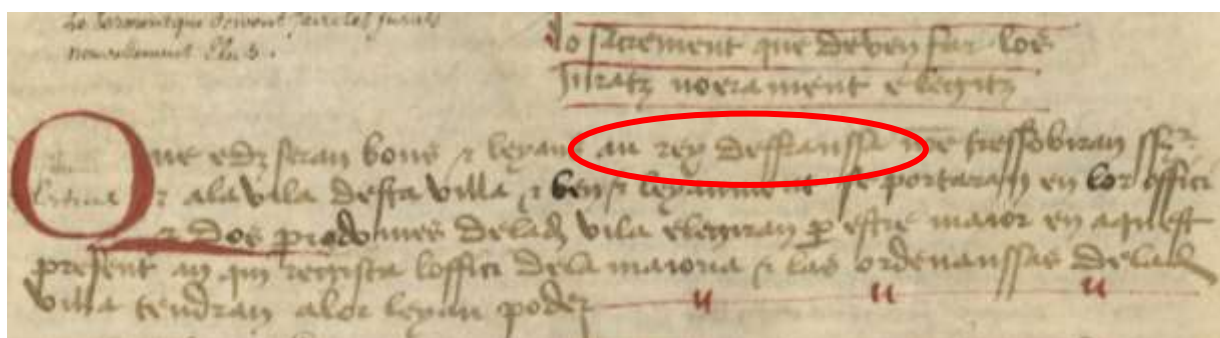 Le serment que doivent faire les Jurats
nouvelement Elus.
Lo sacrement que deben far los
Juratz noerament elegitz
Que edz seran bons & leyaus au rey deffranssa nre tressobiran ssr
& ala vila desta villa & ben & leyaument se portaran en lor offici
& dos prodomes delad vila elegiran p estre maior en aquest
present an qui regista loffici dela maioria & las ordenanssas delad
villa tendran a lor leyau poder